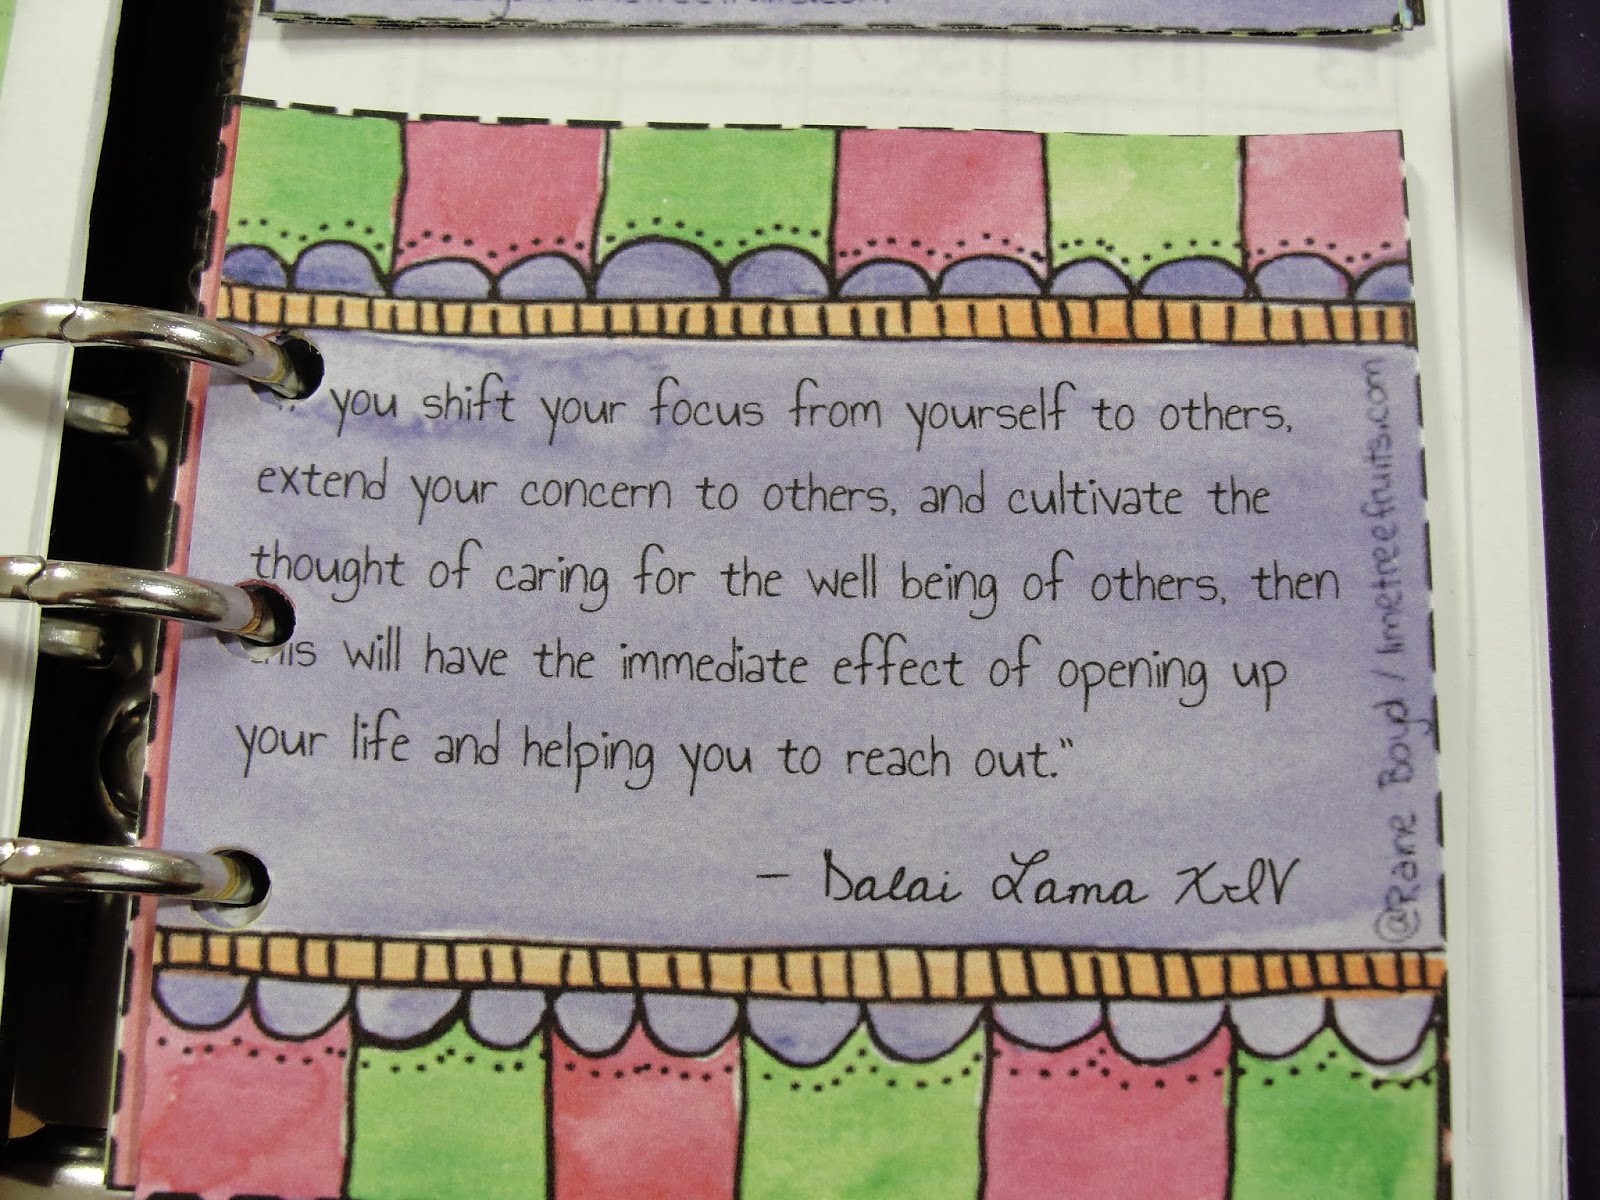 you shift your focus from yourself to others,
extend your concern to others, and cultivate the
thought of caring for the well being of others, then
this will have the immediate effect of opening up
your life and helping you to reach out."
— Dalai Lama XIV
@Rane Boyd / limetreefruits.com